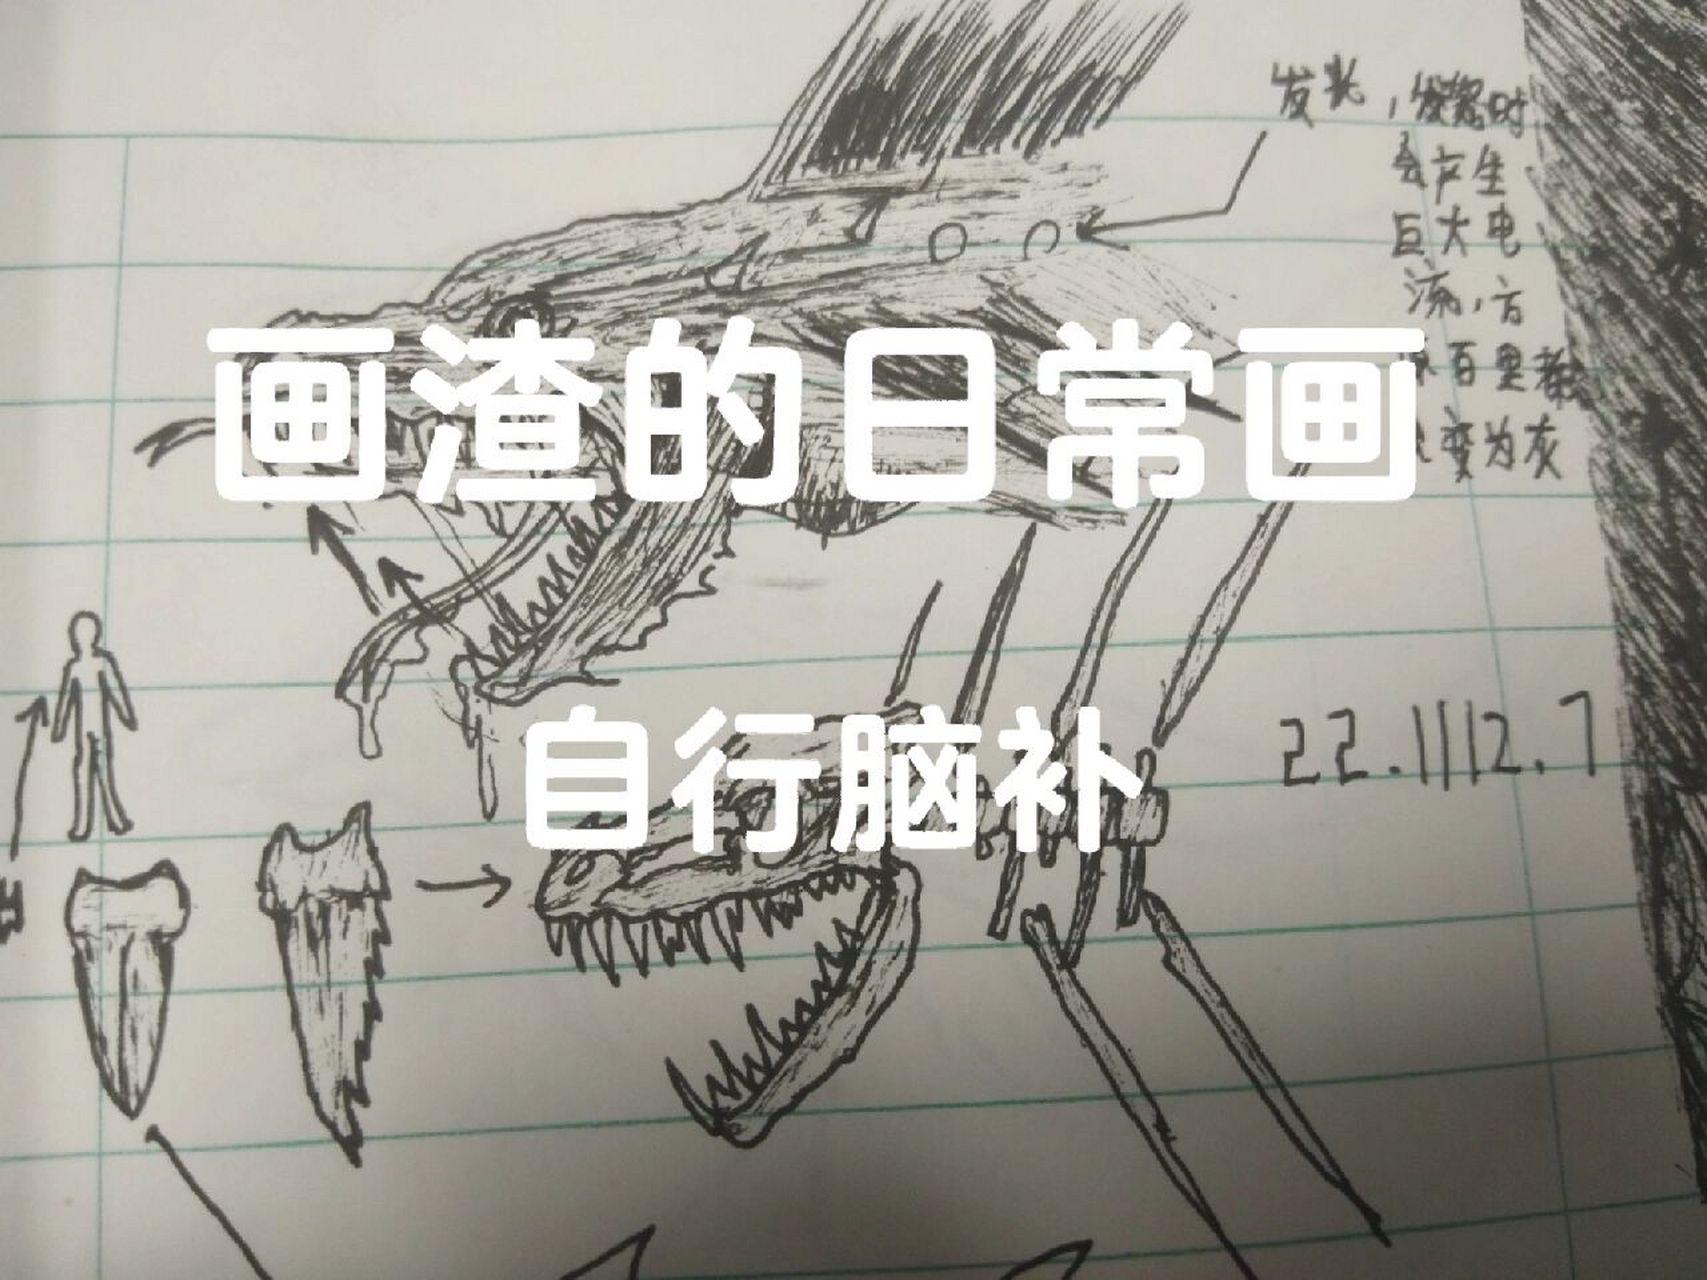 发光，发怒时
会产生
巨大电
流，方
百里都
变为灰
画渣的日常画
自行脑补
22.1112.7